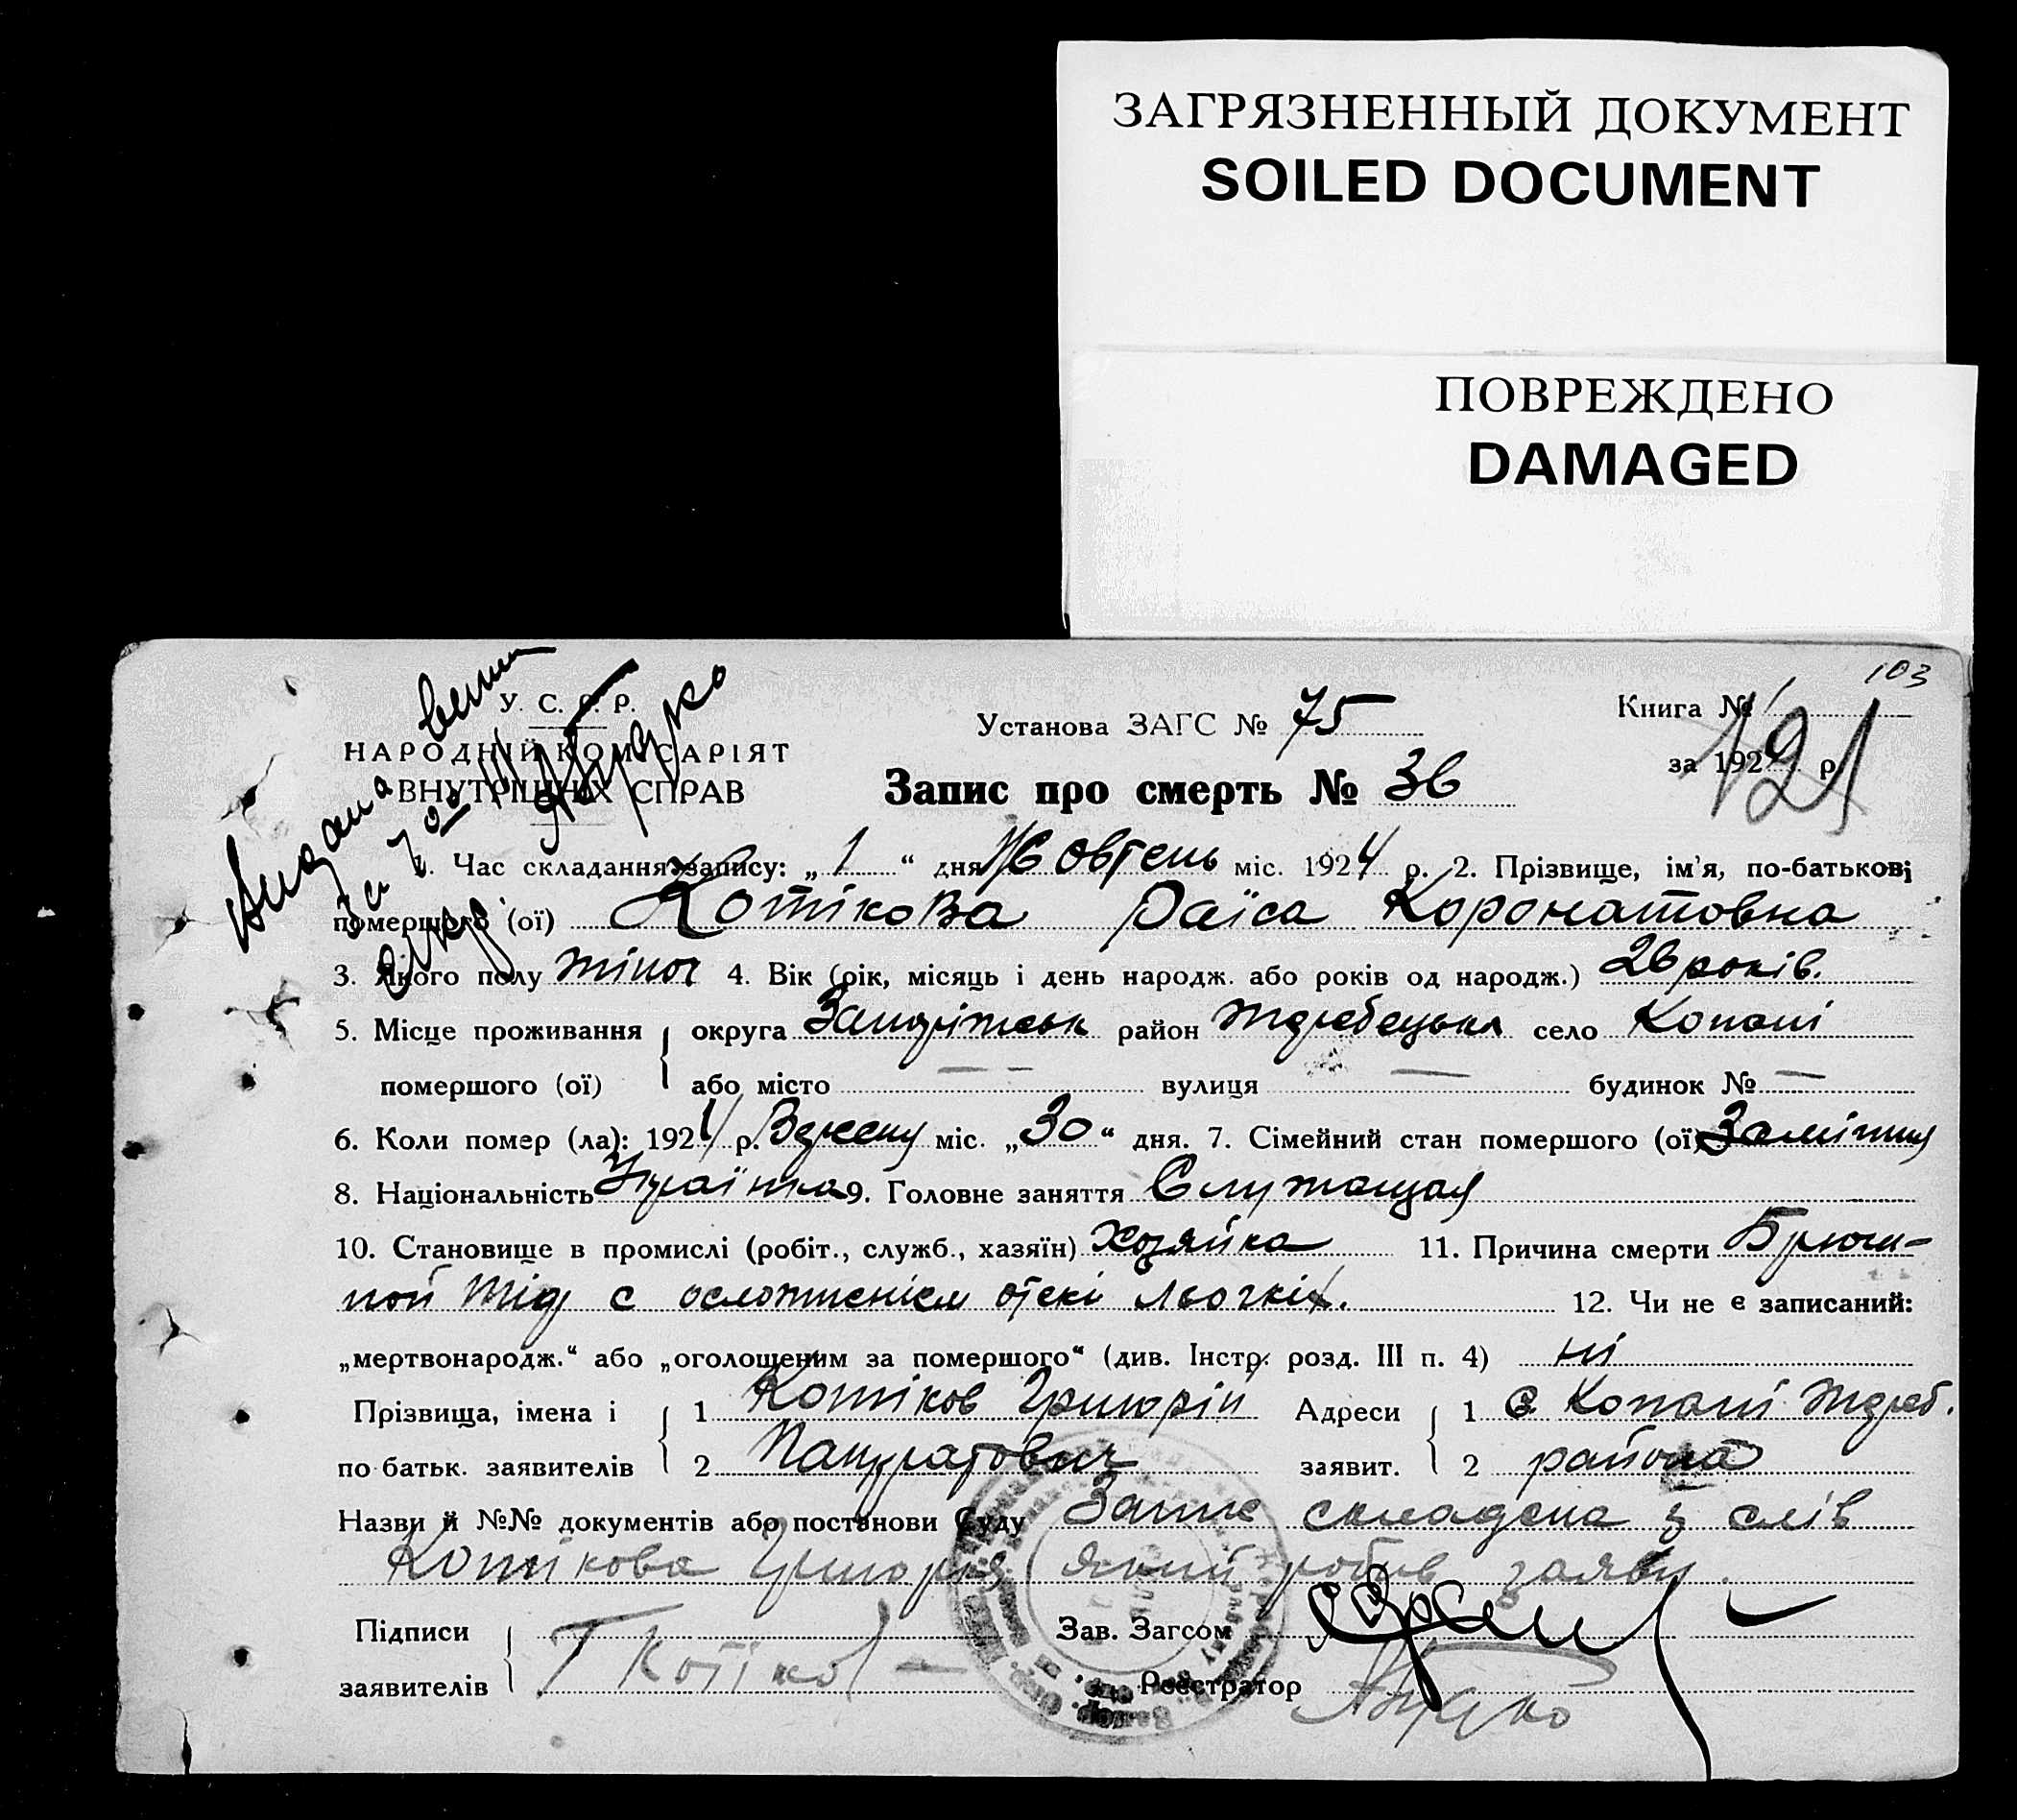 ЗАГРЯЗНЕННЫЙ ДОКУМЕНТ
SOILED DOCUMENT
ПОВРЕЖДЕНО
DAMAGED
103
У. С. Р. Р.
НАРОДНІЙ КОМІСАРІЯТ
ВНУТРІШНІХ СПРАВ
Установа ЗАГС № 75
Запис про смерть № 36
Книга №
за 192 р.
121
Видана
1. Час складання запису: „ 1 “ дня Жовтень міс. 1924 р. 2. Прізвище, ім'я, по-батькові
помершого (ої) Котікова Раїса Коронатовна
3. Якого полу жіноч 4. Вік (рік, місяць і день народж. або років од народж.) 26 років.
5. Місце проживання округа район Жеребецька село Копані
помершого (ої) або місто — вулиця — будинок № —
6. Коли помер (ла): 1924 р. міс. „ 30 “ дня. 7. Сімейний стан помершого (ої) Заміжня
8. Національність Україінка 9. Головне заняття Служащая
10. Становище в промислі (робіт., служб., хазяїн) Хозяйка 11. Причина смерти Брюш-
ной тіф с осложненієм отекі льогкіх. 12. Чи не є записаний:
„мертвонародж.“ або „оголошеним за помершого“ (див. Інстр. розд. III п. 4) ні
Прізвища, імена і 1 Котіков Григорій Адреси 1 с Копані Жереб.
по батьк. заявителів 2 Панкратович заявит. 2 района
Назви й №№ документів або постанови Суду складена з слів
Котікова Григорія який робив заяву.
Підписи Г Котіков Зав. Загсом
заявителів Реєстратор